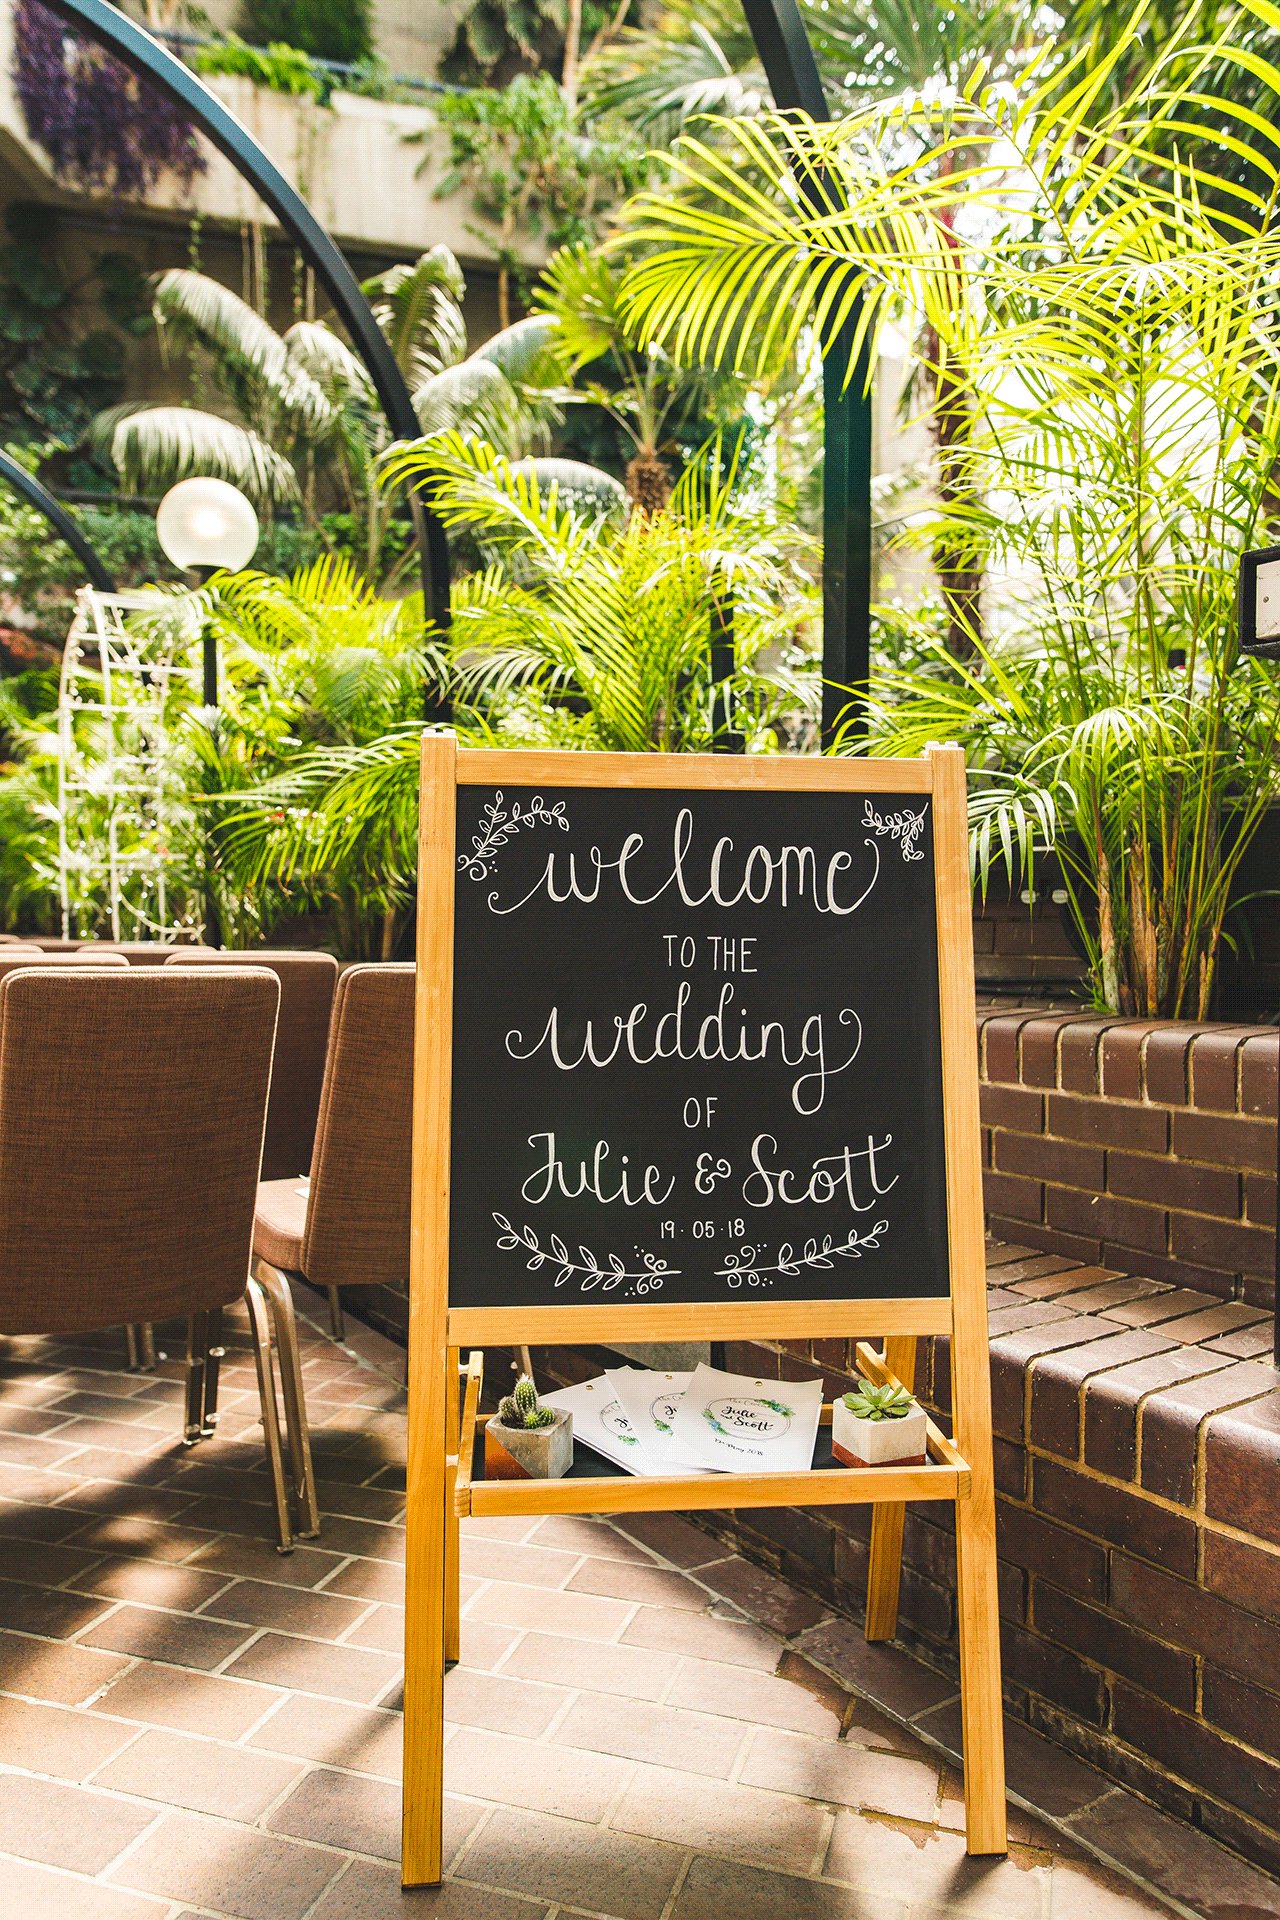 welcome
TO THE
wedding
OF
Julie & Scott
19·05·18
Julie
and Scott